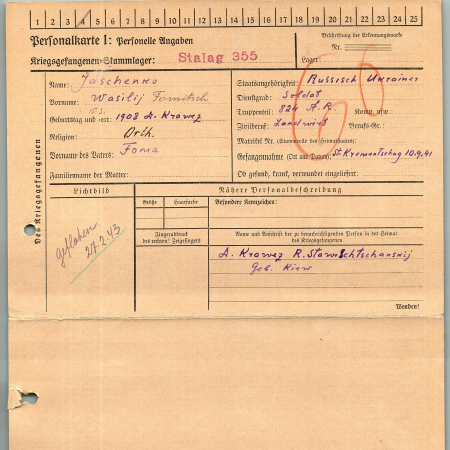 1 2 3 4 5 6 7 8 9 10 11 12 13 14 15 16 17 18 19 20 21 22 23 24 25
Personalkarte I: Personelle Angaben
Kriegsgefangenen-Stammlager: Stalag 355
Beschriftung der Erkennungsmarke
Nr.
Lager:
Des Kriegsgefangenen
Name: Jaschenko
Vorname: Wasilij Fomitsch
Geburtstag und -ort: 15.3. 1908 D. Krawez
Religion: Orth.
Vorname des Vaters: Foma
Familienname der Mutter:
Staatsangehörigkeit: Russisch Ukrainer
Dienstgrad: Soldat
Truppenteil: 824 A.R. Komp. usw.
Zivilberuf: Landwirt Berufs-Gr.:
Matrikel Nr. (Stammrolle des Heimatstaates):
Gefangennahme (Ort und Datum): St. Krementschug 10.9.41
Ob gesund, krank, verwundet eingeliefert:
Lichtbild
geflohen
27.2.43
Nähere Personalbeschreibung
Größe Haarfarbe Besondere Kennzeichen:
Fingerabdruck
des rechten! Zeigefingers
Name und Anschrift der zu benachrichtigenden Person in der Heimat
des Kriegsgefangenen
D. Krawez R. Stawischtschanskij
Geb. Kiew
Wenden!